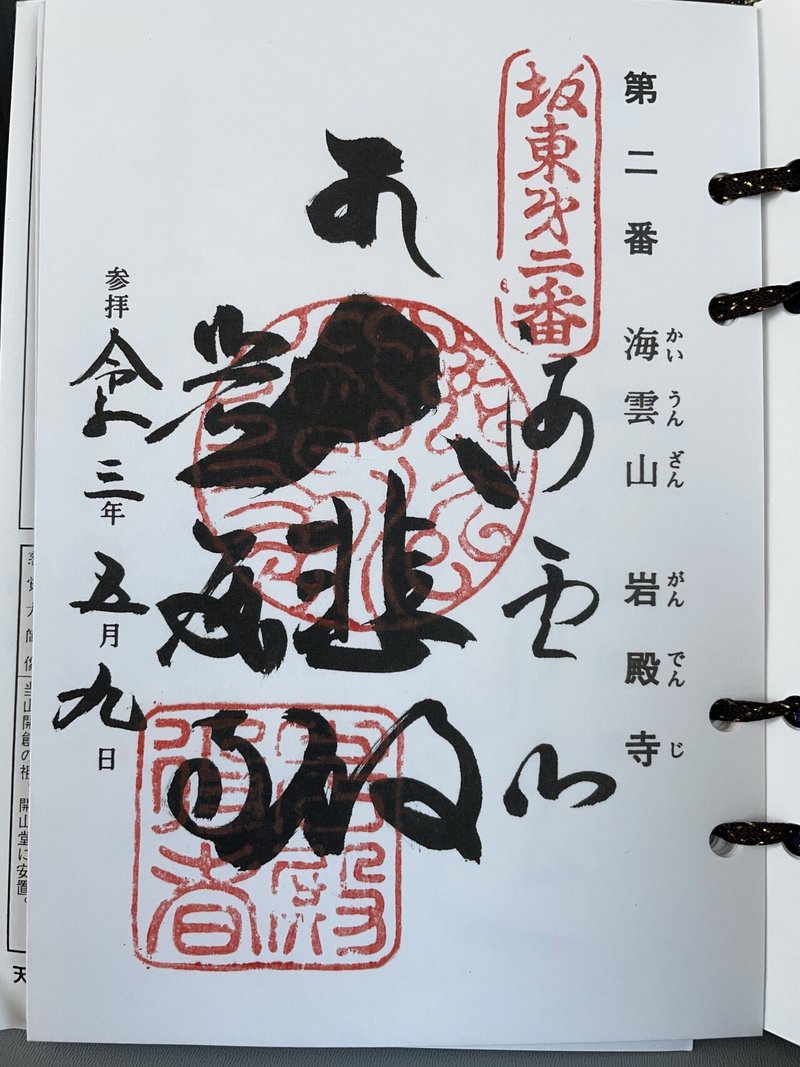 第二番 海雲山 岩殿寺
かい うん ざん がん でん じ
坂東㐧二番
海雲山
大悲殿
参拝 令和三年五月九日
当山開創の祖。開山堂に安置。
天